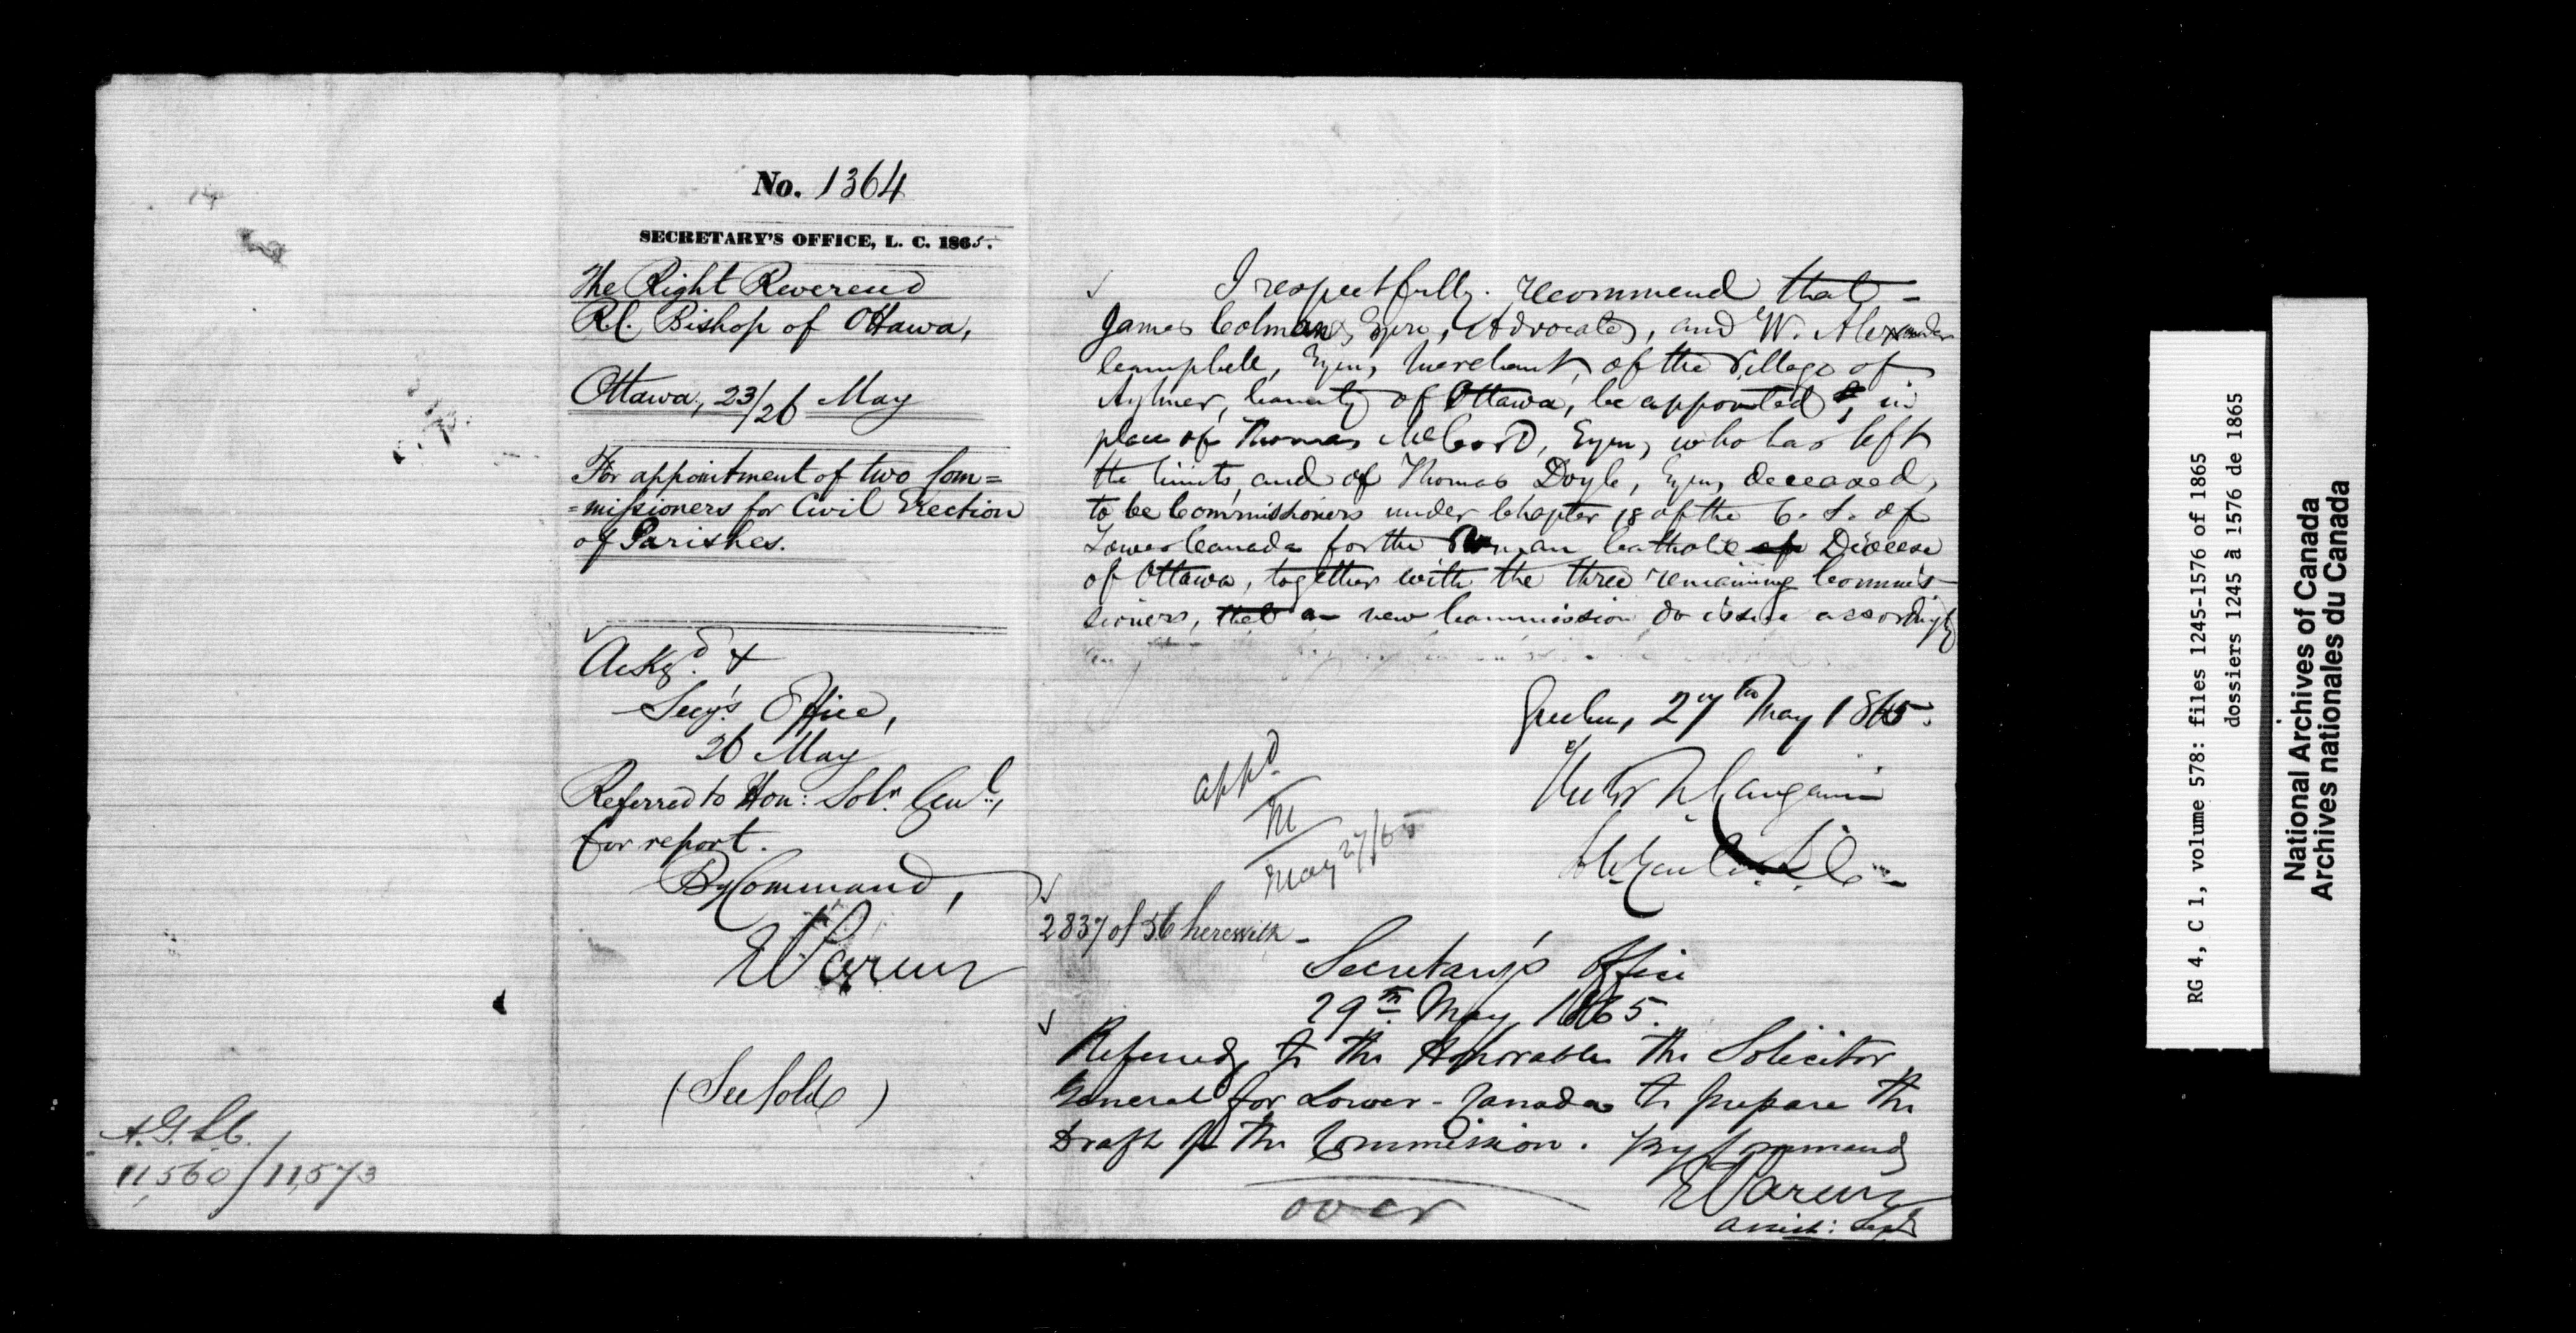 No. 1364
SECRETARY'S OFFICE, L. C. 1865.
The Right Reverend
R.C. Bishop of Ottawa,
Ottawa, 23/26 May
For appointment of two Com=
=missioners for Civil Erection
of Parishes.
Ackgd. &
Secy's. Office,
26 May
Referred to Hon: Solr. Genl.,
for report.
By Command,
E Parent
(See fold)
A.G. L.C.
11,560/11,573
I respectfully recommend that -
James Colman, Esqre, Advocate, and W. Alexander
Campbell, Esqre, Merchant, of the Village of
Aylmer, County of Ottawa, be appointed, in
place of Thomas McCord, Esqre, who has left
the limits, and of Thomas Doyle, Esqre, deceased,
to be Commissioners under Chapter 18 of the C. S. of
Lower Canada for the Roman Catholic of Diocese
of Ottawa, together with the three remaining Commis
sioners, that a new Commission do issue accordingly
Quebec, 27th May 1865.
appd
M
May 27/65
2837 of 56 herewith -
Secretary's Office
29th May 1865.
Referred to the Honorable the Solicitor
General for Lower-Canada to prepare the
Draft of the Commission. By Command
E Parent
Assist: Secy
over
RG 4, C 1, volume 578: files 1245-1576 of 1865
dossiers 1245 à 1576 de 1865
National Archives of Canada
Archives nationales du Canada